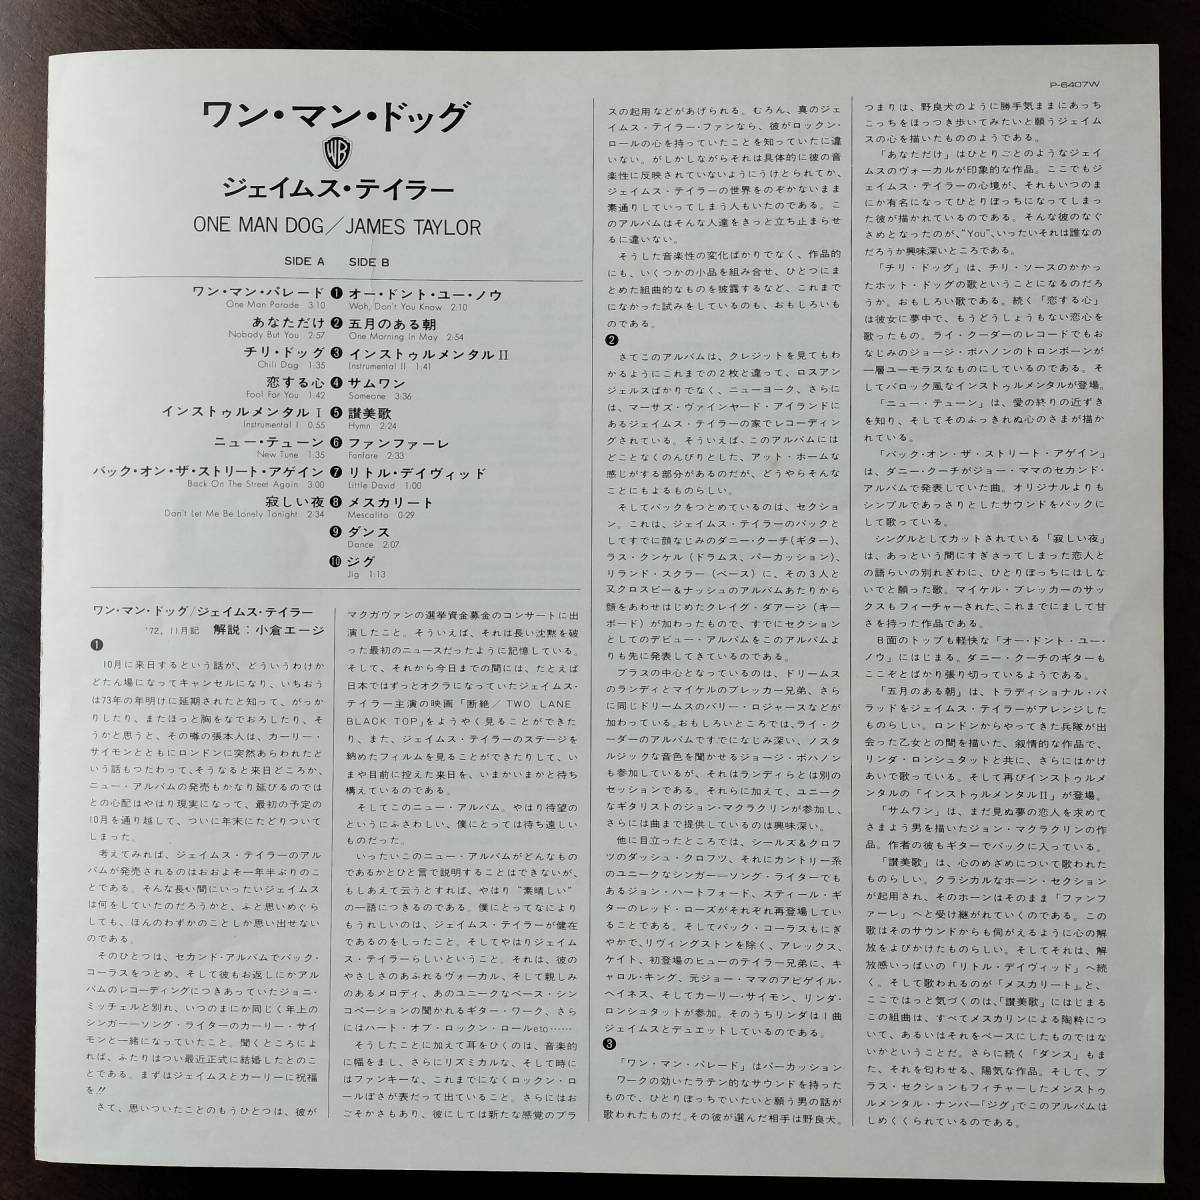 P-6407W
ワン・マン・ドッグ
WB
ジェイムス・テイラー
ONE MAN DOG／JAMES TAYLOR
SIDE A SIDE B
ワン・マン・パレード ❶ オー・ドント・ユー・ノウ
One Man Parade 3:10 Woh, Don't You Know 2:10
あなただけ ❷ 五月のある朝
Nobody But You 2:57 One Morning In May 2:54
チリ・ドッグ ❸ インストゥルメンタルⅡ
Chili Dog 1:35 Instrumental II 1:41
恋する心 ❹ サムワン
Fool For You 1:42 Someone 3:36
インストゥルメンタルⅠ ❺ 讃美歌
Instrumental I 0:55 Hymn 2:24
ニュー・テューン ❻ ファンファーレ
New Tune 1:35 Fanfare 2:33
バック・オン・ザ・ストリート・アゲイン ❼ リトル・デイヴィッド
Back On The Street Again 3:00 Little David 1:00
寂しい夜 ❽ メスカリート
Don't Let Me Be Lonely Tonight 2:34 Mescalito 0:29
❾ ダンス
Dance 2:07
❿ ジグ
Jig 1:13
ワン・マン・ドッグ/ジェイムス・テイラー
'72, 11月記 解説：小倉エージ
❶
10月に来日するという話が、どういうわけか
どたん場になってキャンセルになり、いちおう
は73年の年明けに延期されたと知って、がっか
りしたり、またほっと胸をなでおろしたり、そ
うかと思うと、その噂の張本人は、カーリー・
サイモンとともにロンドンに突然あらわれたと
いう話もつたわって、そうなると来日どころか、
ニュー・アルバムの発売もかなり延びるのでは
との心配はやはり現実になって、最初の予定の
10月を通り越して、ついに年末にたどりついて
しまった。
考えてみれば、ジェイムス・テイラーのアル
バムが発売されるのはおおよそ一年半ぶりのこ
とである。そんな長い間にいったいジェイムス
は何をしていたのだろうかと、ふと思いめぐら
しても、ほんのわずかのことしか思い出せない
のである。
そのひとつは、セカンド・アルバムでバック・
コーラスをつとめ、そして彼もお返しにかアル
バムのレコーディングにつきあっていたジョニ・
ミッチェルと別れ、いつのまにか同じく年上の
シンガー―ソング・ライターのカーリー・サイ
モンと一緒になっていたこと。聞くところによ
れば、ふたりはつい最近正式に結婚したとのこ
とである。まずはジェイムスとカーリーに祝福
を!!
さて、思いついたことのもうひとつは、彼が
マクガヴァンの選挙資金募金のコンサートに出
演したこと。そういえば、それは長い沈黙を破
った最初のニュースだったように記憶している。
そして、それから今日までの間には、たとえば
日本ではずっとオクラになっていたジェイムス・
テイラー主演の映画「断絶／TWO LANE
BLACK TOP」をようやく見ることができた
り、また、ジェイムス・テイラーのステージを
納めたフィルムを見ることができたりして、い
まや目前に控えた来日を、いまかいまかと待ち
構えているのである。
そしてこのニュー・アルバム。やはり待望の
というにふさわしい、僕にとっては待ち遠しい
ものだった。
いったいこのニュー・アルバムがどんなもの
であるかとひと言で説明することはできないが、
もしあえて云うとすれば、やはり“素晴しい”
の一語につきるのである。僕にとってなにより
もうれしいのは、ジェイムス・テイラーが健在
であるのをしったこと。そしてやはりジェイム
ス・テイラーらしいということ。それは、彼の
やさしさのあふれるヴォーカル、そして親しみ
のあるメロディ、あのユニークなベース・シン
コペーションの聞かれるギター・ワーク、さら
にはハート・オブ・ロックン・ロールetc……
そうしたことに加えて耳をひくのは、音楽的
に幅をまし、さらにリズミカルな、そして時に
はファンキーな、これまでになくロックン・ロ
ールぽさが表だって出ていること。さらにはお
ごそかさもあり、彼にしては新たな感覚のブラ
スの起用などがあげられる。むろん、真のジェ
イムス・テイラー・ファンなら、彼がロックン・
ロールの心を持っていたことを知っていたに違
いない。がしかしながらそれは具体的に彼の音
楽性に反映されていないようにうけとられてか、
ジェイムス・テイラーの世界をのぞかないまま
素通りしていってしまう人もいたのである。こ
のアルバムはそんな人達をきっと立ち止まらせ
るに違いない。
そうした音楽性の変化ばかりでなく、作品的
にも、いくつかの小品を組み合せ、ひとつにま
とめた組曲的なものを披露するなど、これまで
になかった試みをしているのも、おもしろいも
のである。
❷
さてこのアルバムは、クレジットを見てもわ
かるようにこれまでの2枚と違って、ロスアン
ジェルスばかりでなく、ニューヨーク、さらに
は、マーサズ・ヴァインヤード・アイランドに
あるジェイムス・テイラーの家でレコーディン
グされている。そういえば、このアルバムには
どことなくのんびりとした、アット・ホームな
感じがする部分があるのだが、どうやらそんな
ことにもよるものらしい。
そしてバックをつとめているのは、セクショ
ン。これは、ジェイムス・テイラーのバックと
してすでに顔なじみのダニー・クーチ(ギター)、
ラス・クンケル(ドラムス、パーカッション)、
リランド・スクラー(ベース)に、その3人と
又クロスビー&ナッシュのアルバムあたりから
顔をあわせはじめたクレイグ・ダアージ(キー
ボード)が加わったもので、すでにセクション
としてのデビュー・アルバムをこのアルバムよ
りも先に発表してきているのである。
ブラスの中心となっているのは、ドリームス
のランディとマイケルのブレッカー兄弟、さら
に同じドリームスのバリー・ロジャースなどが
加わっている。おもしろいところでは、ライ・ク
ーダーのアルバムですでになじみ深い、ノスタ
ルジックな音色を聞かせるジョージ・ボハノン
も参加しているが、それはランディらとは別の
セッションである。それらに加えて、ユニーク
なギタリストのジョン・マクラクリンが参加し、
さらには曲まで提供しているのは興味深い。
他に目立ったところでは、シールズ&クロフ
ツのダッシュ・クロフツ、それにカントリー系
のユニークなシンガー―ソング・ライターでも
あるジョン・ハートフォード、スティール・ギ
ターのレッド・ローズがそれぞれ再登場してい
ることである。そしてバック・コーラスもにぎ
やかで、リヴィングストンを除く、アレックス、
ケイト、初登場のヒューのテイラー兄弟に、キ
ャロル・キング、元ジョー・ママのアビゲイル・
ヘイネス、そしてカーリー・サイモン、リンダ・
ロンシュタットが参加。そのうちリンダは1曲
ジェイムスとデュエットしているのである。
❸
「ワン・マン・パレード」はパーカッション
ワークの効いたラテン的なサウンドを持った
もので、ひとりぼっちでいたいと願う男の話が
歌われたものだ。その彼が選んだ相手は野良犬。
つまりは、野良犬のように勝手気ままにあっち
こっちをほっつき歩いてみたいと願うジェイム
スの心を描いたもののようである。
「あなただけ」はひとりごとのようなジェイ
ムスのヴォーカルが印象的な作品。ここでもジ
ェイムス・テイラーの心境が、それもいつのま
にか有名になってひとりぼっちになってしまっ
た彼が描かれているのである。そんな彼のなぐ
さめとなったのが、“You”、いったいそれは誰なの
だろうか興味深いところである。
「チリ・ドッグ」は、チリ・ソースのかかっ
たホット・ドッグの歌ということになるのだろ
うか。おもしろい歌である。続く「恋する心」
は彼女に夢中で、もうどうしょうもない恋心を
歌ったもの。ライ・クーダーのレコードでもお
なじみのジョージ・ボハノンのトロンボーンが
一層ユーモラスなものにしているのである。そ
してバロック風なインストゥルメンタルが登場。
「ニュー・テューン」は、愛の終りの近ずき
を知り、そしてそのふっきれぬ心のさまが描か
れている。
「バック・オン・ザ・ストリート・アゲイン」
は、ダニー・クーチがジョー・ママのセカンド・
アルバムで発表していた曲。オリジナルよりも
シンプルであっさりとしたサウンドをバックに
して歌っている。
シングルとしてカットされている「寂しい夜」
は、あっという間にすぎさってしまった恋人と
の語らいの別れぎわに、ひとりぼっちにはしな
いでと願った歌。マイケル・ブレッカーのサッ
クスもフィーチャーされた、これまでにまして甘
さを持った作品である。
B面のトップも軽快な「オー・ドント・ユー・
ノウ」にはじまる。ダニー・クーチのギターも
ここぞとばかり張り切っているようである。
「五月のある朝」は、トラディショナル・バ
ラッドをジェイムス・テイラーがアレンジした
ものらしい。ロンドンからやってきた兵隊が出
会った乙女との間を描いた、叙情的な作品で、
リンダ・ロンシュタットと共に、さらにはかけ
あいで歌っている。そして再びインストゥルメ
ンタルの「インストゥルメンタルⅡ」が登場。
「サムワン」は、まだ見ぬ夢の恋人を求めて
さまよう男を描いたジョン・マクラクリンの作
品。作者の彼もギターでバックに入っている。
「讃美歌」は、心のめざめについて歌われた
ものらしい。クラシカルなホーン・セクション
が起用され、そのホーンはそのまま「ファンフ
ァーレ」へと受け継がれていくのである。この
歌はそのサウンドからも伺がえるように心の解
放をよびかけたものらしい。そしてそれは、解
放感いっぱいの「リトル・デイヴィッド」へ続
く。そして歌われるのが「メスカリート」と、
ここではっと気づくのは、「讃美歌」にはじまる
この組曲は、すべてメスカリンによる陶粋につ
いて、あるいはそれをベースにしたものではな
いかということだ。さらに続く「ダンス」もま
た、それを匂わせる、陽気な作品。そして、ブ
ラス・セクションもフィチャーしたメンストゥ
ルメンタル・ナンバー「ジグ」でこのアルバムは
しめくくられているのである。